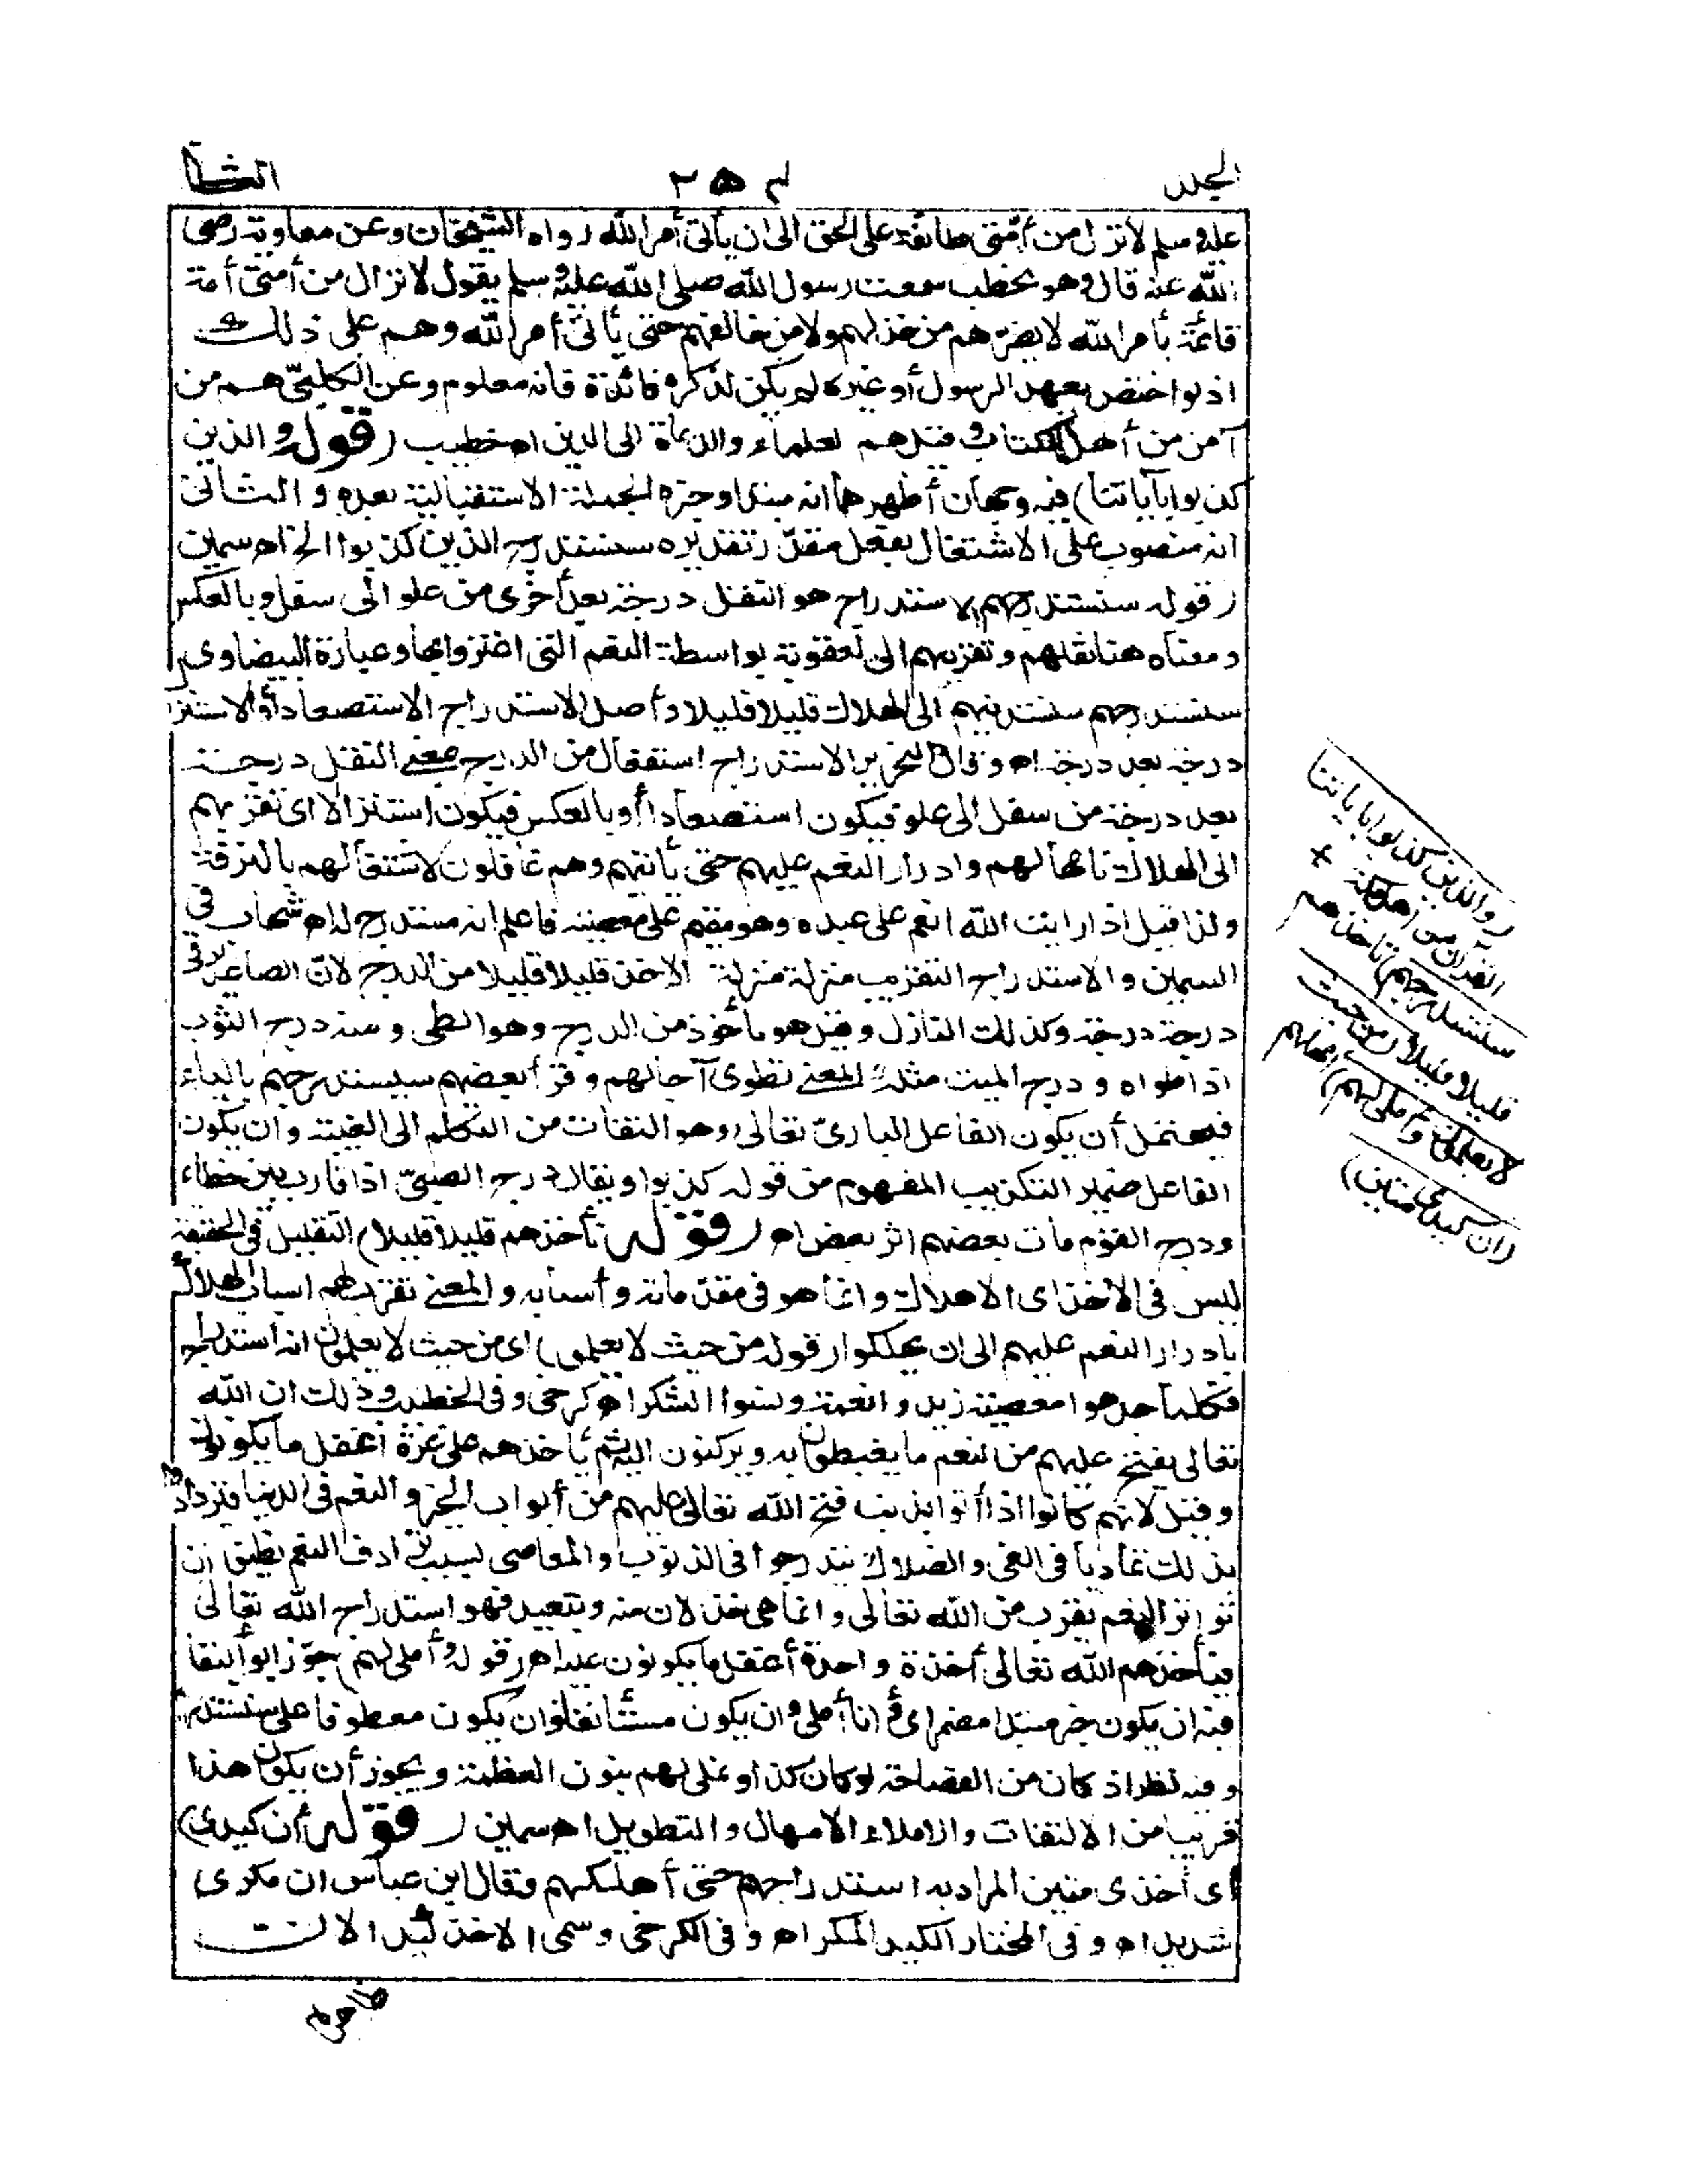 المجلد ٢٥٤ الثا
عليه وسلم لا تزال من أمّتى طائفة على الحق الى ان يأتى أمر الله رواه الشيخان وعن معاوية رضى
الله عنه قال وهو يخطب سمعت رسول الله صلى الله عليه وسلم يقول لا تزال من أمتى أمة
قائمة بأمر الله لا يضرّهم من خذلهم ولا من خالفهم حتى يأتى أمر الله وهم على ذلك
اذ لو اختص بعهد الرسول أو غيره لم يكن لذكره فائدة فانه معلوم وعن الكلبىّ هم من
آمن من أهل الكتاب وقيل هم العلماء والدعاة الى الدين اه خطيب (قوله والذين
كذبوا بآياتنا) فيه وجهان أظهرهما انه مبتدا وخبره الجملة الاستقبالية بعده والثانى
انه منصوب على الاشتغال بفعل مقدّر تقديره سنستدرج الذين كذبوا الخ اه سمين
(قوله سنستدرجهم) الاستدراج هو النقل درجة بعد أخرى من علو الى سفل وبالعكس
ومعناه هنا نقلهم وتقريبهم الى العقوبة بواسطة النعم التى اغتروا بها وعبارة البيضاوى
سنستدرجهم سنستدنيهم الى الهلاك قليلا قليلا وأصل الاستدراج الاستصعاد أو الاستنزال
درجة بعد درجة اه وقال التحرير الاستدراج استفعال من الدرج بمعنى النقل درجة
بعد درجة من سفل الى علو فيكون استصعادا أو بالعكس فيكون استنزالا اى نقربهم
الى الهلاك بامهالهم وادرار النعم عليهم حتى يأتيهم وهم غافلون لاشتغالهم بالترفة
ولذا قيل اذا رايت الله انعم على عبده وهو مقيم على معصيته فاعلم انه مستدرج له اه شهاب وفى
السمين والاستدراج التقريب منزلة منزلة والاخذ قليلا قليلا من الدرج لانّ الصاعد يرقى
درجة درجة وكذلك النازل وقيل هو مأخوذ من الدرج وهو الطى ومنه درج الثوب
اذا طواه ودرج الميت مثله والمعنى نطوى آجالهم وقرأ بعضهم سيستدرجهم بالياء
فيحتمل أن يكون الفاعل البارىّ تعالى وهو التفات من التكلم الى الغيبة وان يكون
الفاعل ضمير التكذيب المفهوم من قوله كذبوا ويقال درج الصبىّ اذا قارب بين خطاه
ودرج القوم مات بعضهم اثر بعض اه (قوله نأخذهم قليلا قليلا) التقليل فى الحقيقة
ليس فى الأخذ اى الاهلاك وانما هو فى مقدّماته وأسبابه والمعنى نقرّب لهم اسباب الهلاك
بادرار النعم عليهم الى ان يهلكوا (قوله من حيث لا يعلمون) اى من حيث لا يعلمون انه استدراج
فكلما جددوا معصية زيدوا نعمة ونسوا الشكر اه كرخى وفى الخطيب وذلك ان الله
تعالى يفتح عليهم من النعم ما يغبطون به ويركنون اليه ثم يأخذهم على غرّة أغفل ما يكونون
وقيل لانهم كانوا اذا أتوا بذنب فتح الله تعالى عليهم من أبواب الخير والنعم فى الدنيا فيزدادون
بذلك تماديا فى الغى والضلال ويتدرجوا فى الذنوب والمعاصى بسبب ترادف النعم يظنون أن
تواتر النعم يقرب من الله تعالى وانما هى خذلان منه وتبعيد فهو استدراج الله تعالى
فيأخذهم الله تعالى أخذة واحدة أغفل ما يكونون عليه اه (قوله وأملى لهم) جوّز ابو البقا
فيه ان يكون خبر مبتدا مضمر اى وأنا أملى وان يكون مستأنفا وان يكون معطوفا على سنستدرج
وفيه نظر اذ كان من الفصاحة لو كان كذا ونملى لهم بنون العظمة ويجوز أن يكون هذا
قريبا من الالتفات والاملاء الامهال والتطويل اه سمين (قوله أن كيدى)
اى أخذى متين المراد به استدراجهم حتى أهلكهم وقال ابن عباس ان مكرى
شديد اه وفى المختار الكيد المكر اه وفى الكرخى وسمى الاخذ كيدا لان
(والذين كذبوا بآياتنا
القرآن من أهل مكة +
سنستدرجهم) نأخذهم
قليلا قليلا (من حيث
لا يعلمون وأملى لهم) امهلهم
(ان كيدى متين)